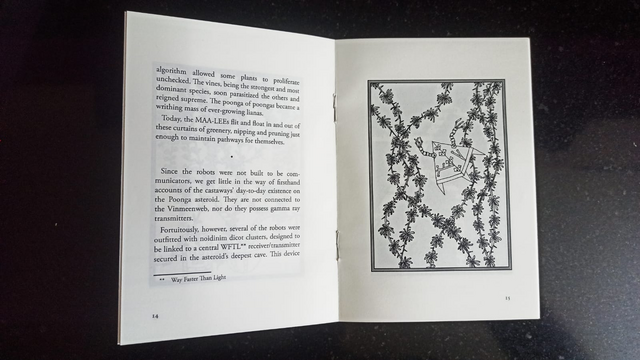 algorithm allowed some plants to proliferate
unchecked. The vines, being the strongest and most
dominant species, soon parasitized the others and
reigned supreme. The poonga of poongas became a
writhing mass of ever-growing lianas.
Today, the MAA-LEEs flit and float in and out of
these curtains of greenery, nipping and pruning just
enough to maintain pathways for themselves.
•
Since the robots were not built to be com-
municators, we get little in the way of firsthand
accounts of the castaways' day-to-day existence on
the Poonga asteroid. They are not connected to
the Vinmeenweb, nor do they possess gamma ray
transmitters.
Fortuitously, however, several of the robots were
outfitted with noidinim dicot clusters, designed to
be linked to a central WFTL** receiver/transmitter
secured in the asteroid's deepest cave. This device
** Way Faster Than Light
14
15